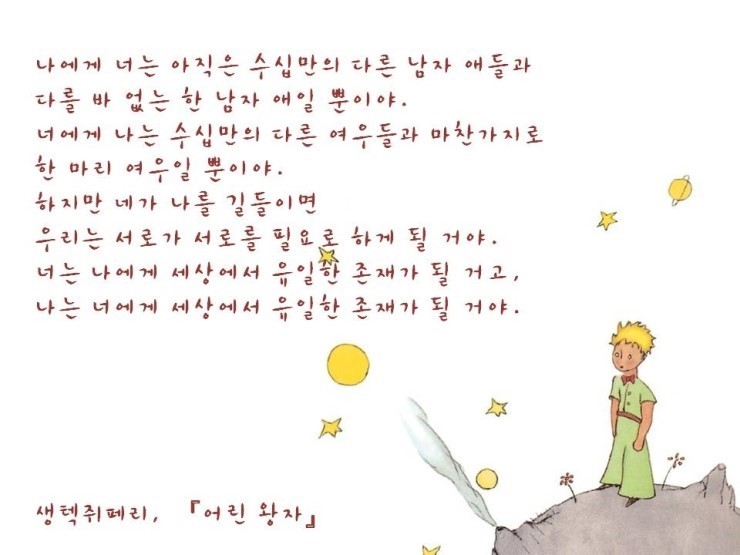 나에게 너는 아직은 수십만의 다른 남자 애들과
다를 바 없는 한 남자 애일 뿐이야.
너에게 나는 수십만의 다른 여우들과 마찬가지로
한 마리 여우일 뿐이야.
하지만 네가 나를 길들이면
우리는 서로가 서로를 필요로 하게 될 거야.
너는 나에게 세상에서 유일한 존재가 될 거고,
나는 너에게 세상에서 유일한 존재가 될 거야.
생텍쥐페리, 『어린 왕자』